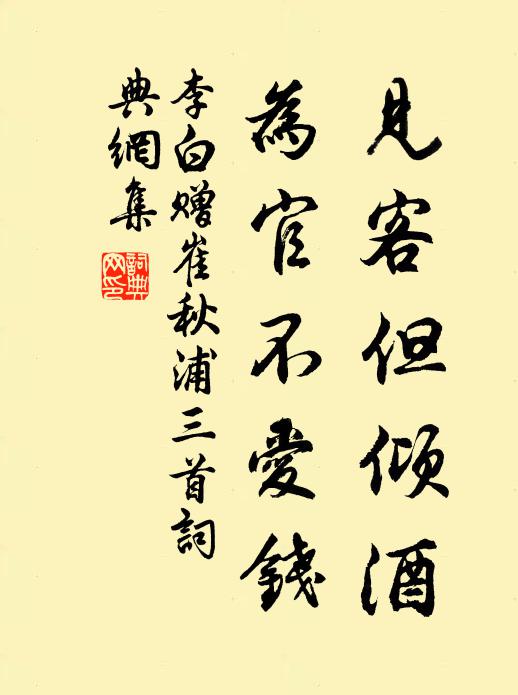 見客但傾酒
為官不愛錢
李白贈崔秋浦三首詞
典網集
詞典網印